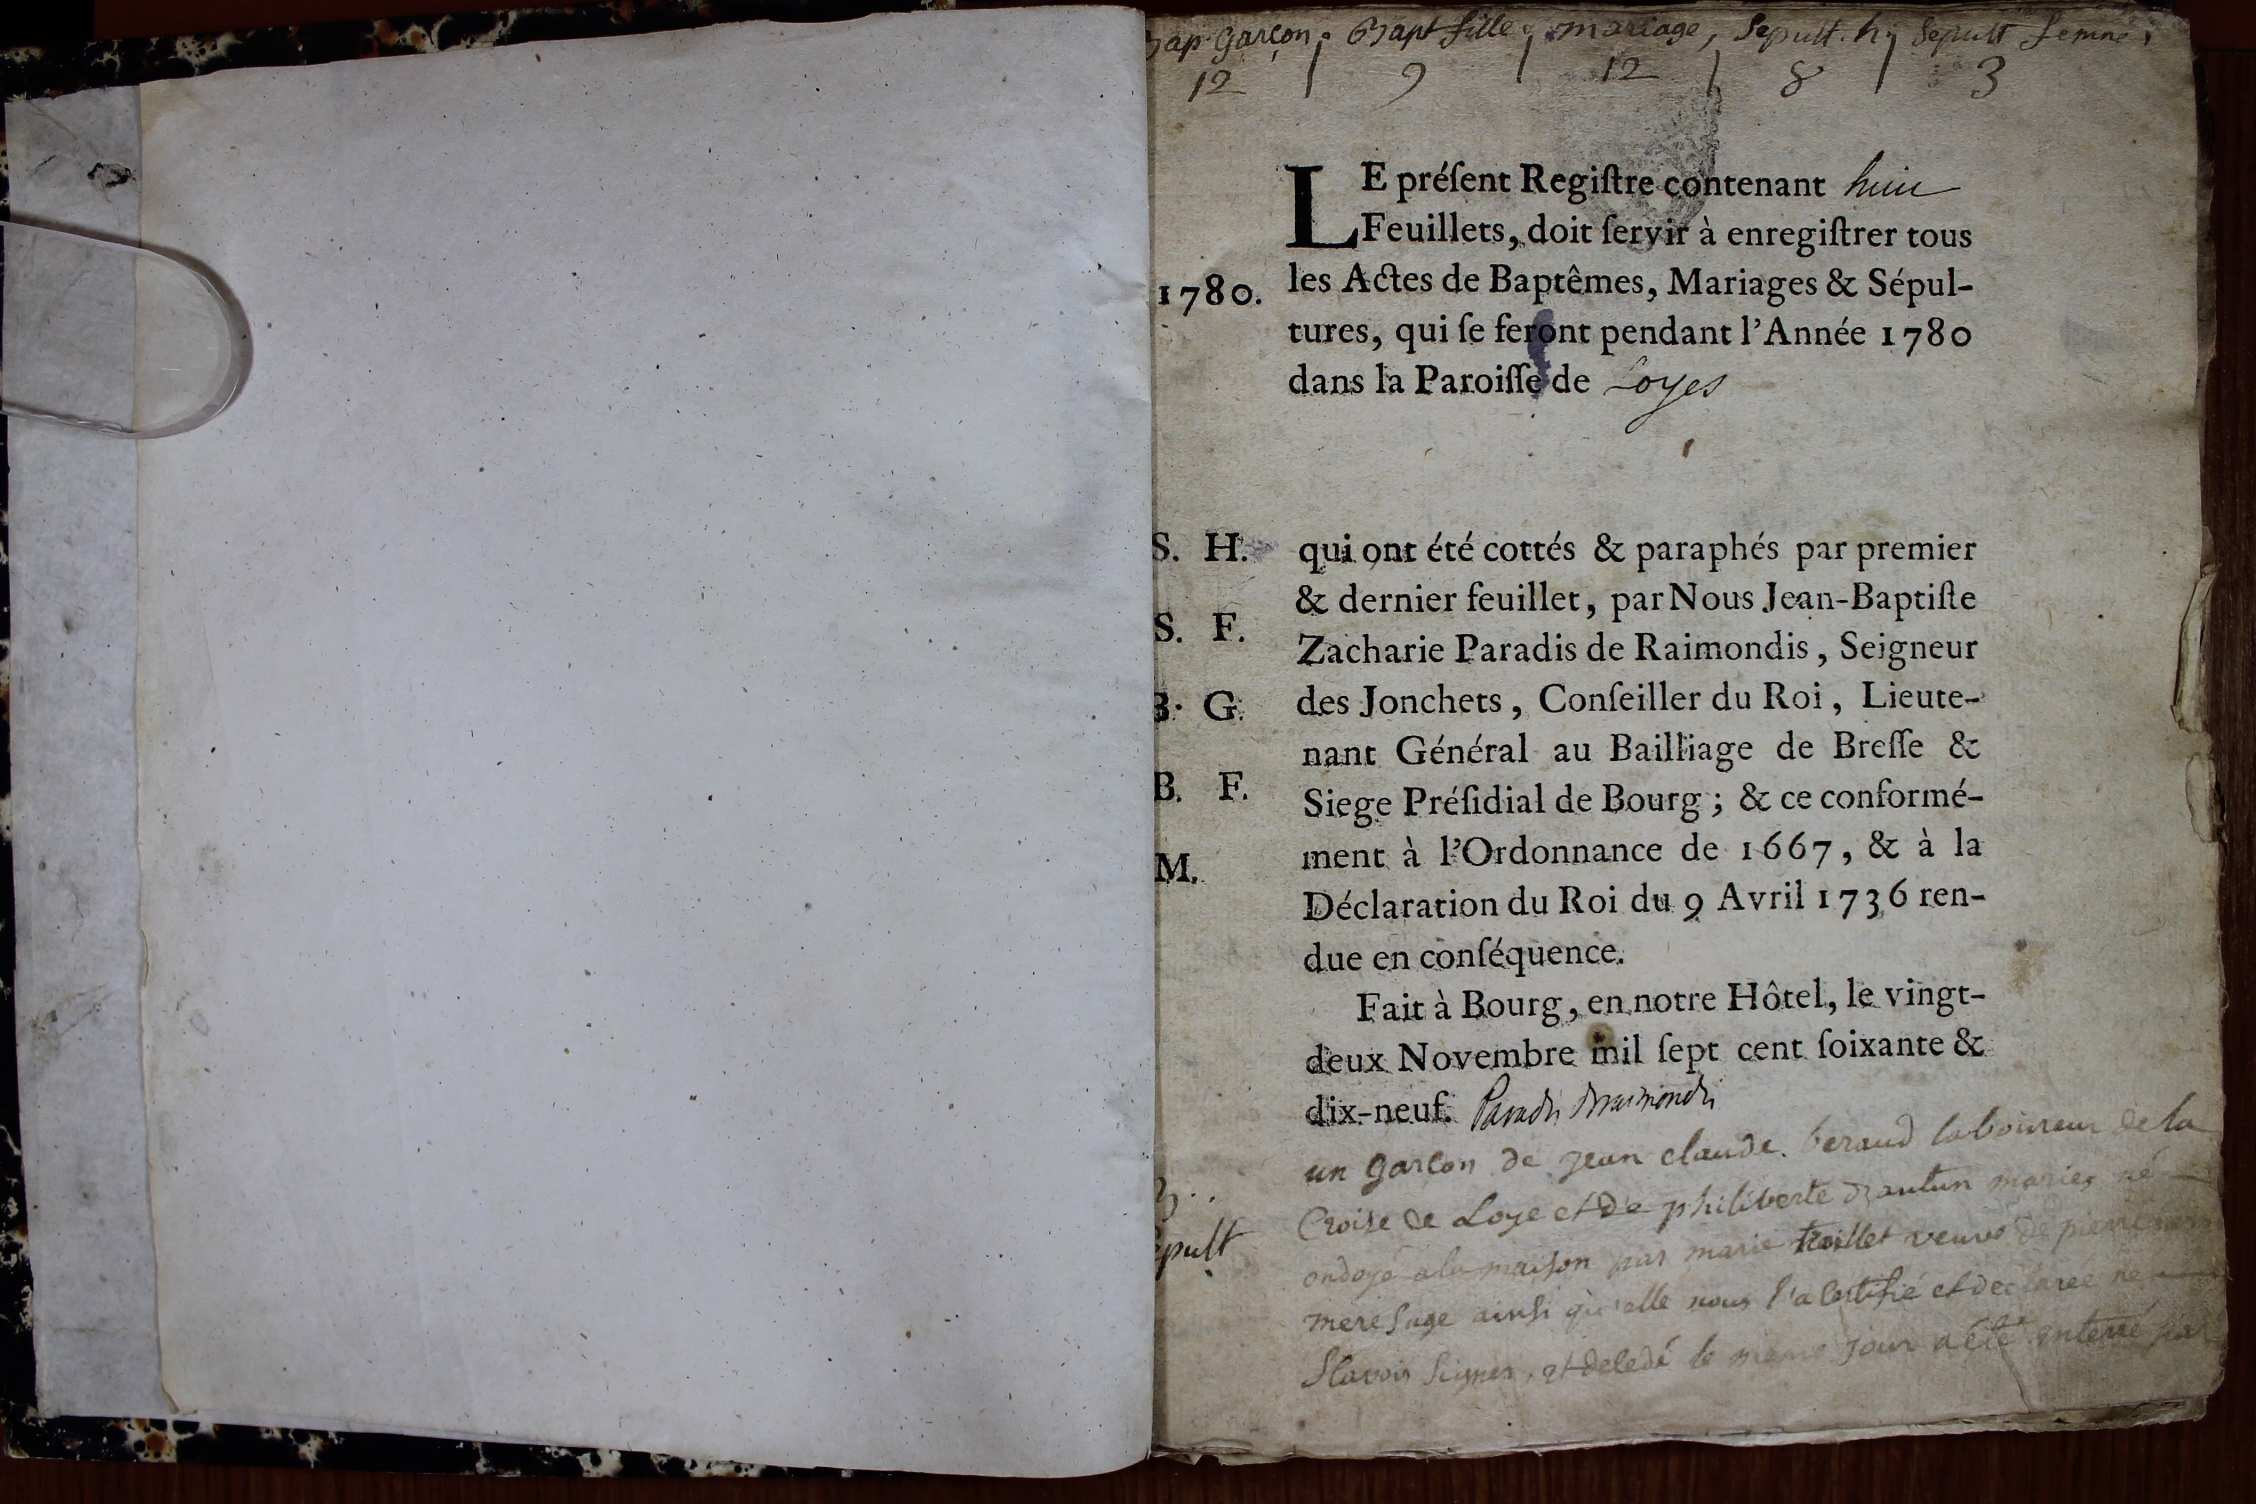 bap garçon, Bapt fille, mariage, Sepult. h, Sepult femme,
12 | 9 | 12 | 8 | 3
LE préſent Regiſtre contenant huit
Feuillets, doit ſervir à enregiſtrer tous
1780. les Actes de Baptêmes, Mariages & Sépul-
tures, qui ſe feront pendant l'Année 1780
dans la Paroiſſe de Loyes
S. H. qui ont été cottés & paraphés par premier
& dernier feuillet, par Nous Jean-Baptiſte
S. F. Zacharie Paradis de Raimondis, Seigneur
B. G. des Jonchets, Conſeiller du Roi, Lieute-
nant Général au Bailliage de Breſſe &
B. F. Siege Préſidial de Bourg; & ce conformé-
M. ment à l'Ordonnance de 1667, & à la
Déclaration du Roi du 9 Avril 1736 ren-
due en conſéquence.
Fait à Bourg, en notre Hôtel, le vingt-
deux Novembre mil ſept cent ſoixante &
dix-neuf. Paradis de raimondis
un garcon de jean claude beraud laboureur de la
Croise de Loye et de philiberte mariez né
epult ondoyé a la maison par marie veuve de pierre
mere sage ainsi qu'elle nous l'a certifié et declaree ne
Scavoir signer, et decedé le meme jour a été enterré par